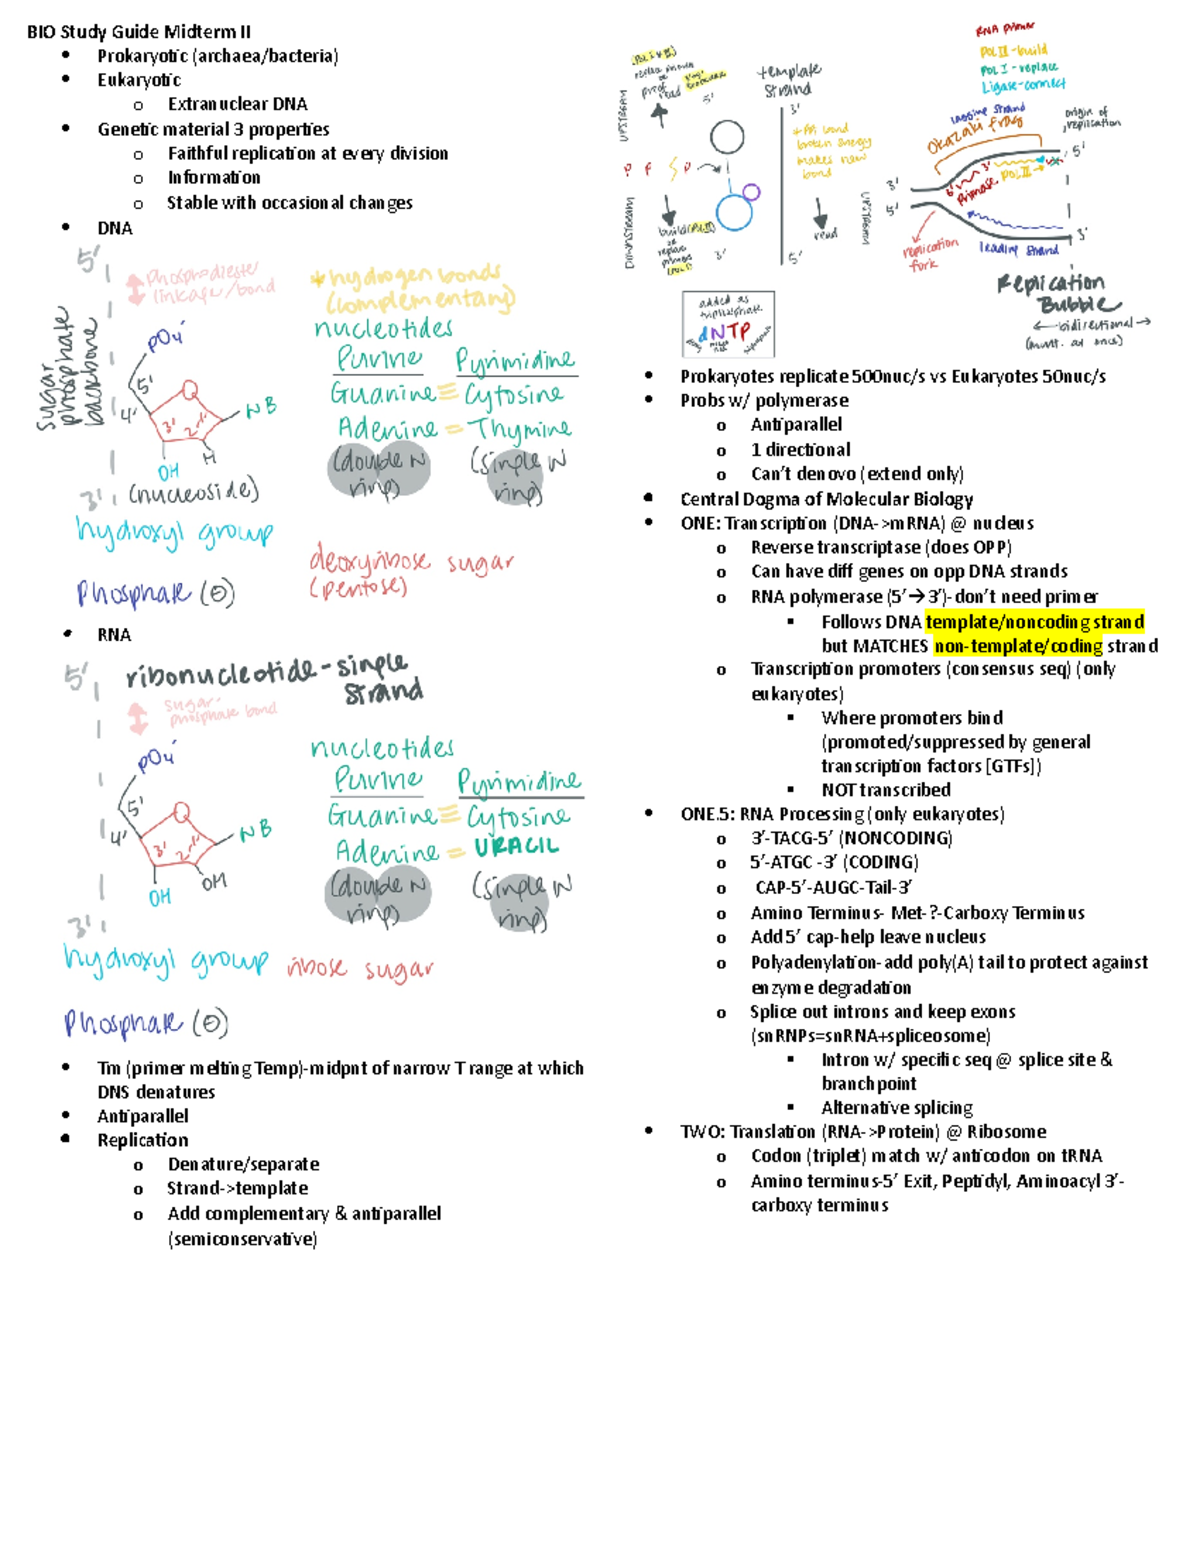 BIO Study Guide Midterm II
• Prokaryotic (archaea/bacteria)
• Eukaryotic
o Extranuclear DNA
• Genetic material 3 properties
o Faithful replication at every division
o Information
o Stable with occasional changes
• DNA
5'
Phosphodiester
linkage/bond
*hydrogen bonds
(complementary)
Sugar
phosphate
backbone
nucleotides
Purine Pyrimidine
Guanine ≡ Cytosine
Adenine = Thymine
(double N
ring)
(single N
ring)
PO4-
5'
O
4'
3' 2' 1'
NB
OH
H
3'
(nucleoside)
hydroxyl group
deoxyribose sugar
(pentose)
Phosphate (-)
• RNA
5'
ribonucleotide - single
strand
sugar-
phosphate bond
nucleotides
Purine Pyrimidine
Guanine ≡ Cytosine
Adenine = URACIL
(double N
ring)
(single N
ring)
PO4-
5'
O
4'
3' 2' 1'
NB
OH
OH
3'
hydroxyl group
ribose sugar
Phosphate (-)
• Tm (primer melting Temp)-midpnt of narrow T range at which
DNS denatures
• Antiparallel
• Replication
o Denature/separate
o Strand->template
o Add complementary & antiparallel
(semiconservative)
RNA primer
POL III - build
POL I - replace
Ligase-connect
template
strand
UPSTREAM
proof
read
5'
3'
bond
broken energy
makes new
bond
P P P
DOWNSTREAM
build (POL III)
or
replace
primers
(POL I)
3'
read
5'
added as
triphosphate
dNTP
lagging strand
Okazaki frag
origin of
replication
5'
3'
5'
3'
Primase
POL III
UPSTREAM
replication
fork
leading strand
3'
Replication
Bubble
bidirectional
(mult. at once)
• Prokaryotes replicate 500nuc/s vs Eukaryotes 50nuc/s
• Probs w/ polymerase
o Antiparallel
o 1 directional
o Can't denovo (extend only)
• Central Dogma of Molecular Biology
• ONE: Transcription (DNA->mRNA) @ nucleus
o Reverse transcriptase (does OPP)
o Can have diff genes on opp DNA strands
o RNA polymerase (5'→3')-don't need primer
▪ Follows DNA template/noncoding strand
but MATCHES non-template/coding strand
o Transcription promoters (consensus seq) (only
eukaryotes)
▪ Where promoters bind
(promoted/suppressed by general
transcription factors [GTFs])
▪ NOT transcribed
• ONE.5: RNA Processing (only eukaryotes)
o 3'-TACG-5' (NONCODING)
o 5'-ATGC -3' (CODING)
o CAP-5'-AUGC-Tail-3'
o Amino Terminus- Met-?-Carboxy Terminus
o Add 5' cap-help leave nucleus
o Polyadenylation-add poly(A) tail to protect against
enzyme degradation
o Splice out introns and keep exons
(snRNPs=snRNA+spliceosome)
▪ Intron w/ specific seq @ splice site &
branchpoint
▪ Alternative splicing
• TWO: Translation (RNA->Protein) @ Ribosome
o Codon (triplet) match w/ anticodon on tRNA
o Amino terminus-5' Exit, Peptidyl, Aminoacyl 3'-
carboxy terminus